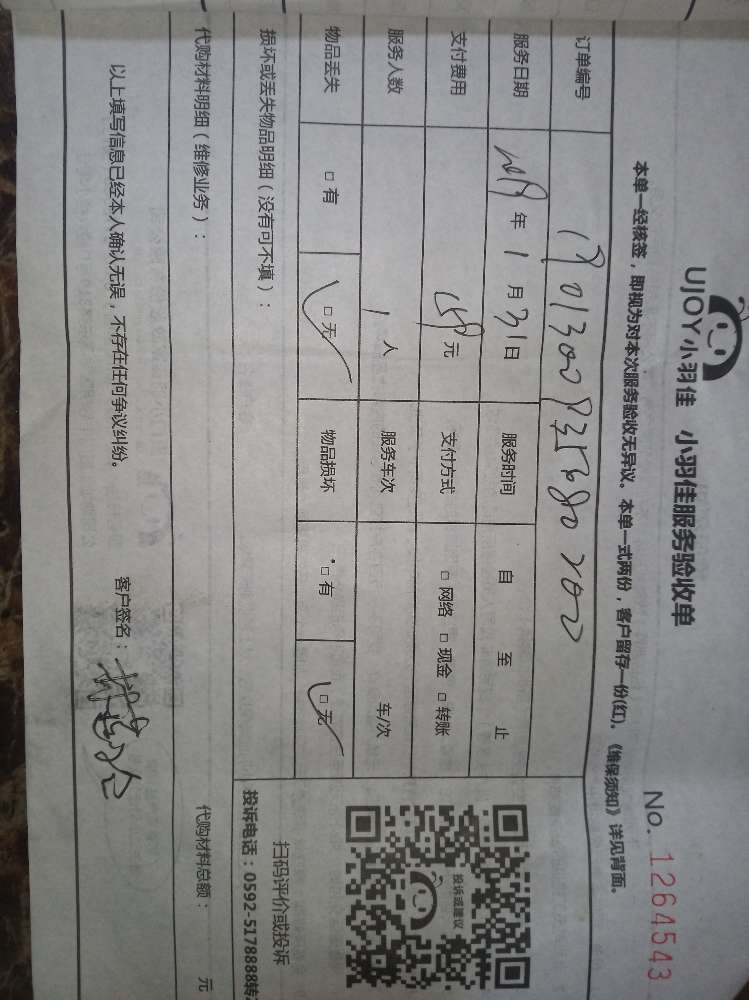 UJOY小羽佳 小羽佳服务验收单
No. 1264543
本单一经核签，即视为对本次服务验收无异议。本单一式两份，客户留存一份(红)。《维保须知》详见背面。
订单编号
服务日期 2019年1月31日 服务时间 自 至 止
支付费用 元 支付方式 □ 网络 □ 现金 □ 转账
服务人数 1人 服务车次 车/次
物品丢失 □ 有 □ 无 物品损坏 □ 有 □ 无
损坏或丢失物品明细（没有可不填）：
投诉或建议
扫码评价或投诉
投诉电话：0592-5178888转
代购材料明细（维修业务）： 代购材料总额： 元
以上填写信息已经本人确认无误，不存在任何争议纠纷。 客户签名：